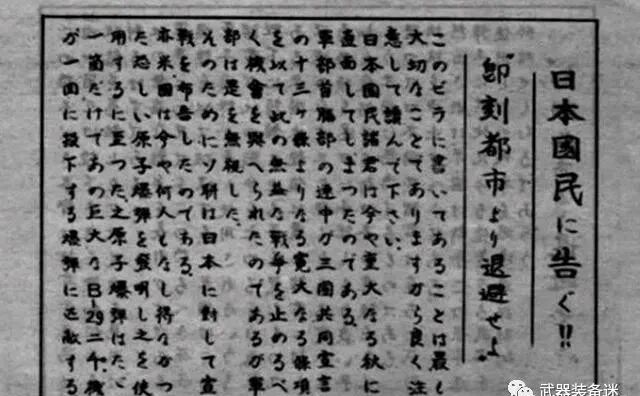 日本國民に告ぐ!!
"即刻都市より退避せよ"
このビラに書いてあることは最も
大切なことでありますから良く注
意して讀んで下さい。
日本國民諸君は今や重大なる秋に
直面してしまつたのである。
軍部首腦部の連中が三國共同宣言
の十三ヶ條よりなる寛大なる條項
を以て此の無益な戰爭を止めるべ
く機會を與へられたのであるが軍
部は是を無視した。
そのためにソ聯は日本に對して宣
戰を布告したのである。
亦米國は今や何人もなし得なかつ
た恐しい原子爆彈を發明し之を使
用するに至つた。之原子爆彈はたゞ
一箇だけであの巨大なB-29二千機
が一回に投下する爆彈に匹敵する
武器装备迷